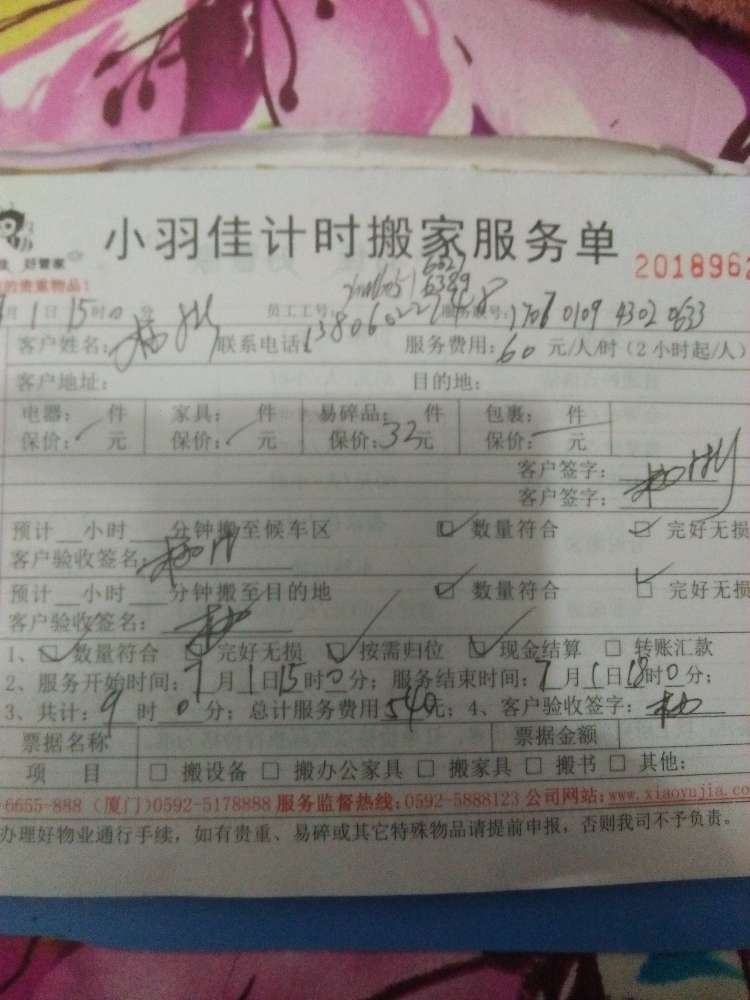 小羽佳计时搬家服务单
好管家
2018962
的贵重物品!
月1日15时0分 员工工号: 服务账号:1707 0109 4302 0633
客户姓名: 联系电话 服务费用:60元/人/时(2小时起/人)
客户地址: 目的地:
电器: 件 家具: 件 易碎品: 件 包裹: 件
保价: 元 保价: 元 保价:32元 保价: 元
客户签字:
客户签字:
预计__小时___分钟搬至候车区 ☑数量符合 ☑完好无损
客户验收签名:
预计__小时___分钟搬至目的地 ☑数量符合 ☑完好无损
客户验收签名:
1、☑数量符合 ☑完好无损 ☑按需归位 ☑现金结算 □转账汇款
2、服务开始时间:7月1日15时0分; 服务结束时间:7月1日18时0分;
3、共计:9时0分; 总计服务费用540元; 4、客户验收签字:
票据名称 票据金额
项 目 □搬设备 □搬办公家具 □搬家具 □搬书 □其他:
6655-888 (厦门)0592-5178888 服务监督热线:0592-5888123 公司网站:www.xiaoyujia.co
办理好物业通行手续,如有贵重、易碎或其它特殊物品请提前申报,否则我司不予负责。